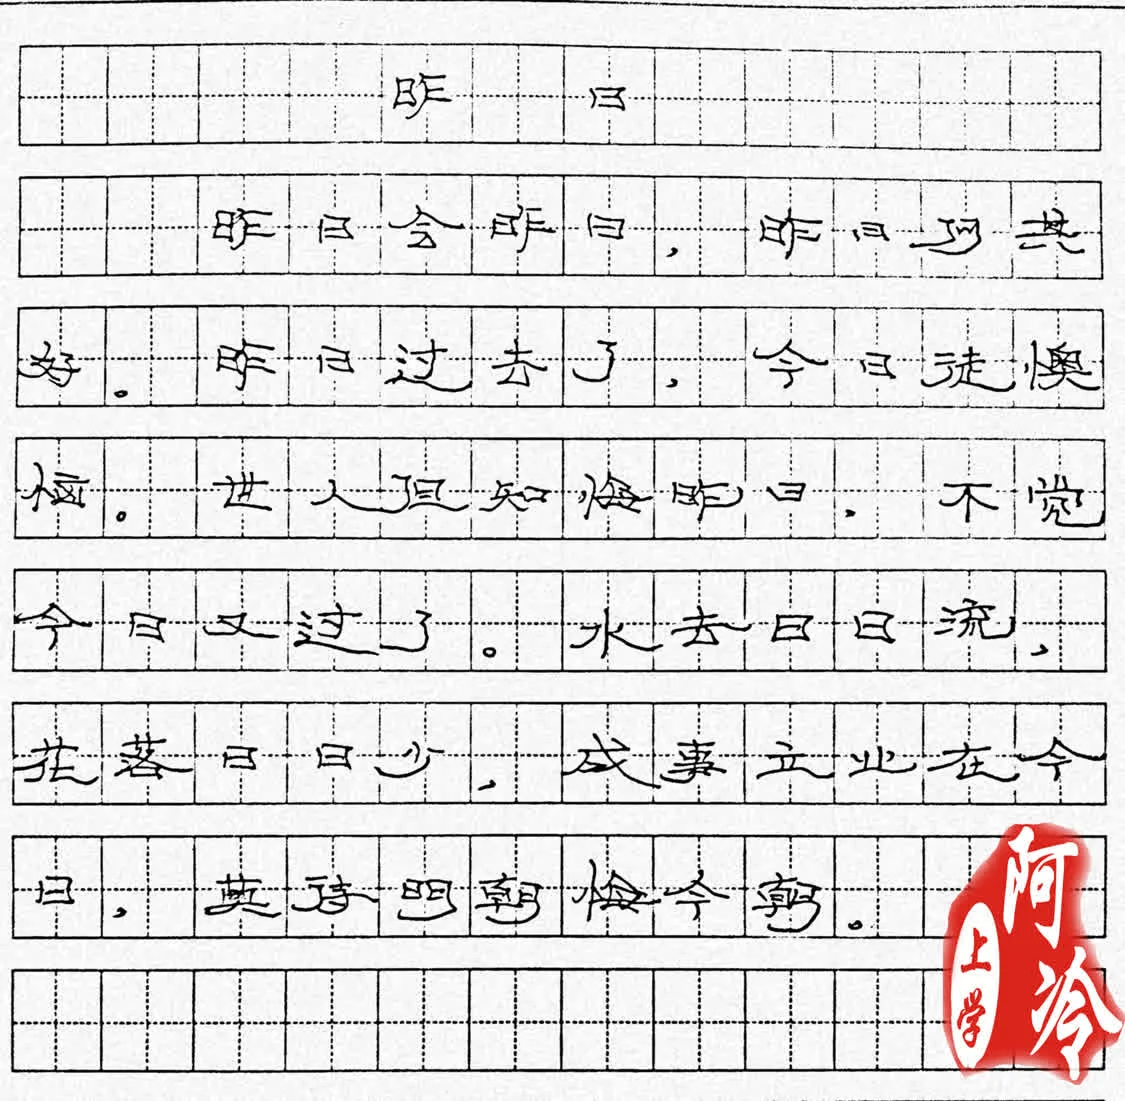 昨日
昨日今昨日，昨日何其
好。昨日过去了，今日徒懊
恼。世人但知悔昨日，不觉
今日又过了。水去日日流，
花落日日少，成事立业在今
日，莫待明朝悔今朝。
阿冷
上学